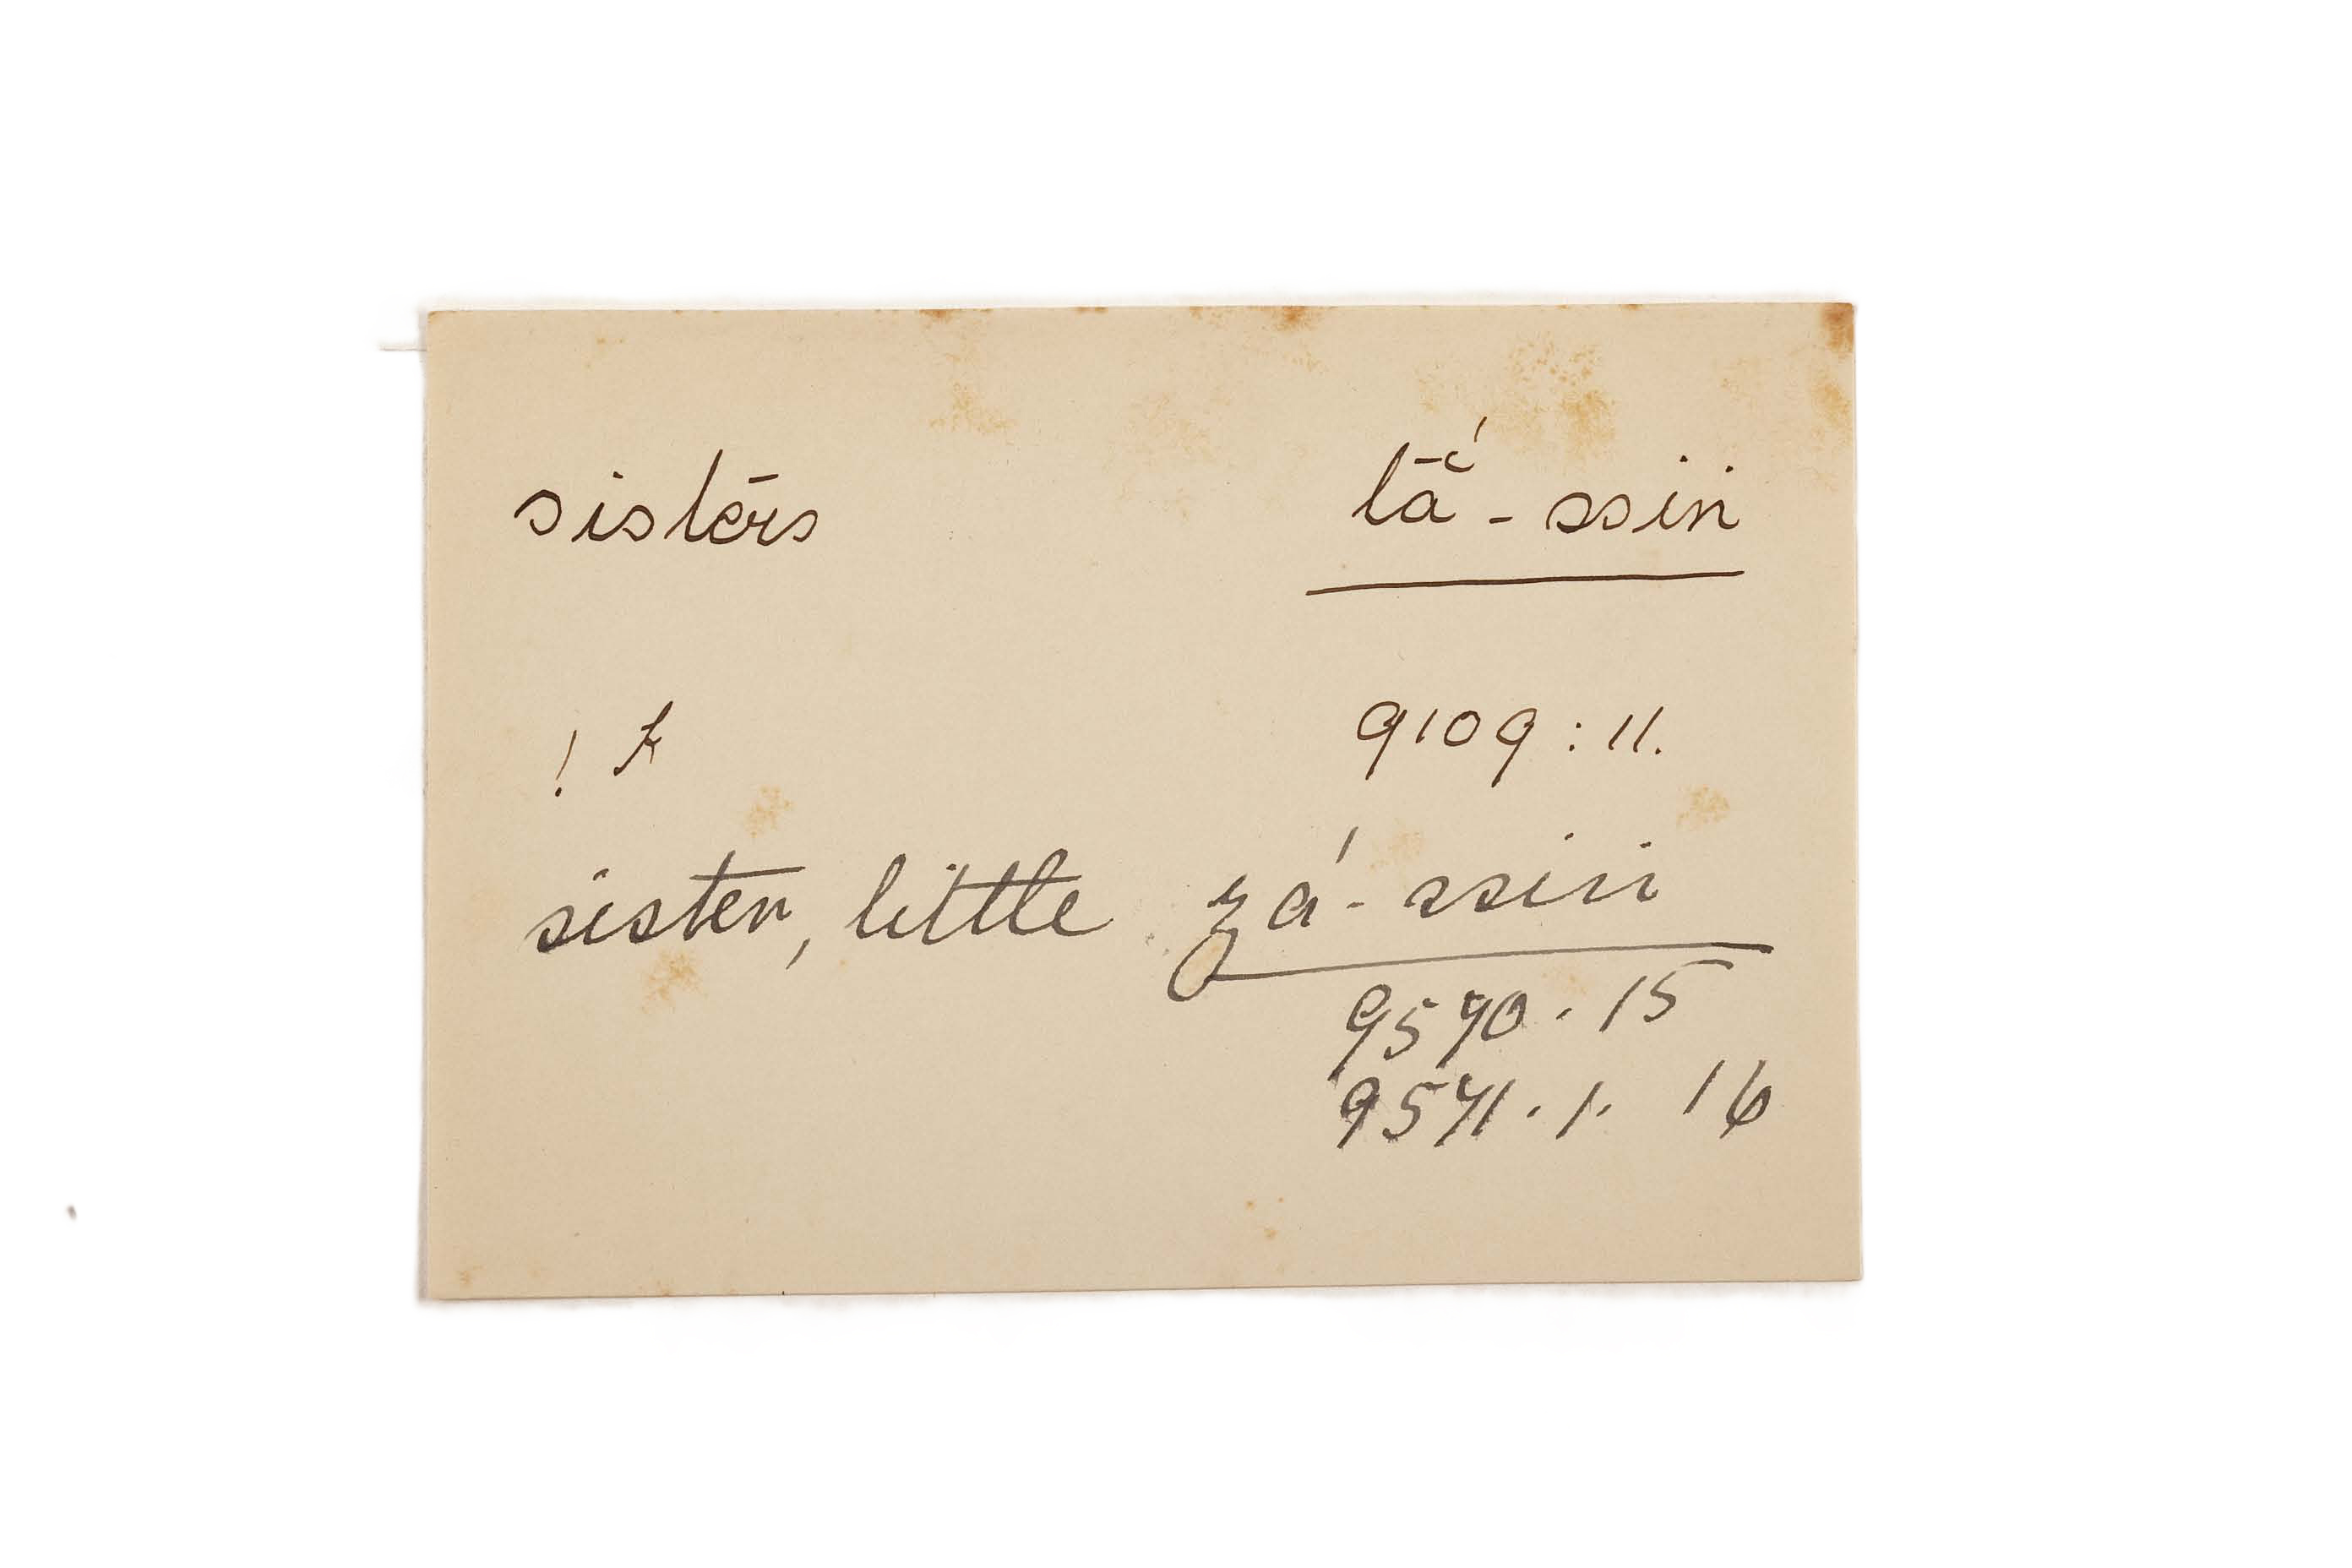 sisters tā́-ssin
! k 9109 : 11.
sister, little zá-ssin
9570 . 15
9571 . 1. 16